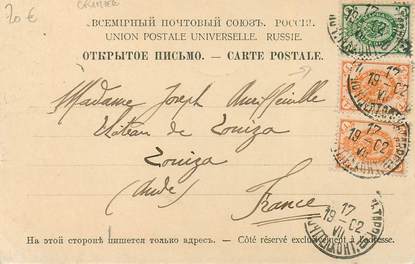 20 €
CRIMÉE
ВСЕМІРНЫЙ ПОЧТОВЫЙ СОЮЗЪ. РОССІЯ.
UNION POSTALE UNIVERSELLE. RUSSIE.
ОТКРЫТОЕ ПИСЬМО. — CARTE POSTALE.
Madame Joseph
Château de Louiza
Louiza
(Aude)
France
На этой сторонѣ пишется только адресъ. — Côté réservé exclusivement à l'adresse.
17
VII
19 02
17
VII
19 02
17
VII
19 02